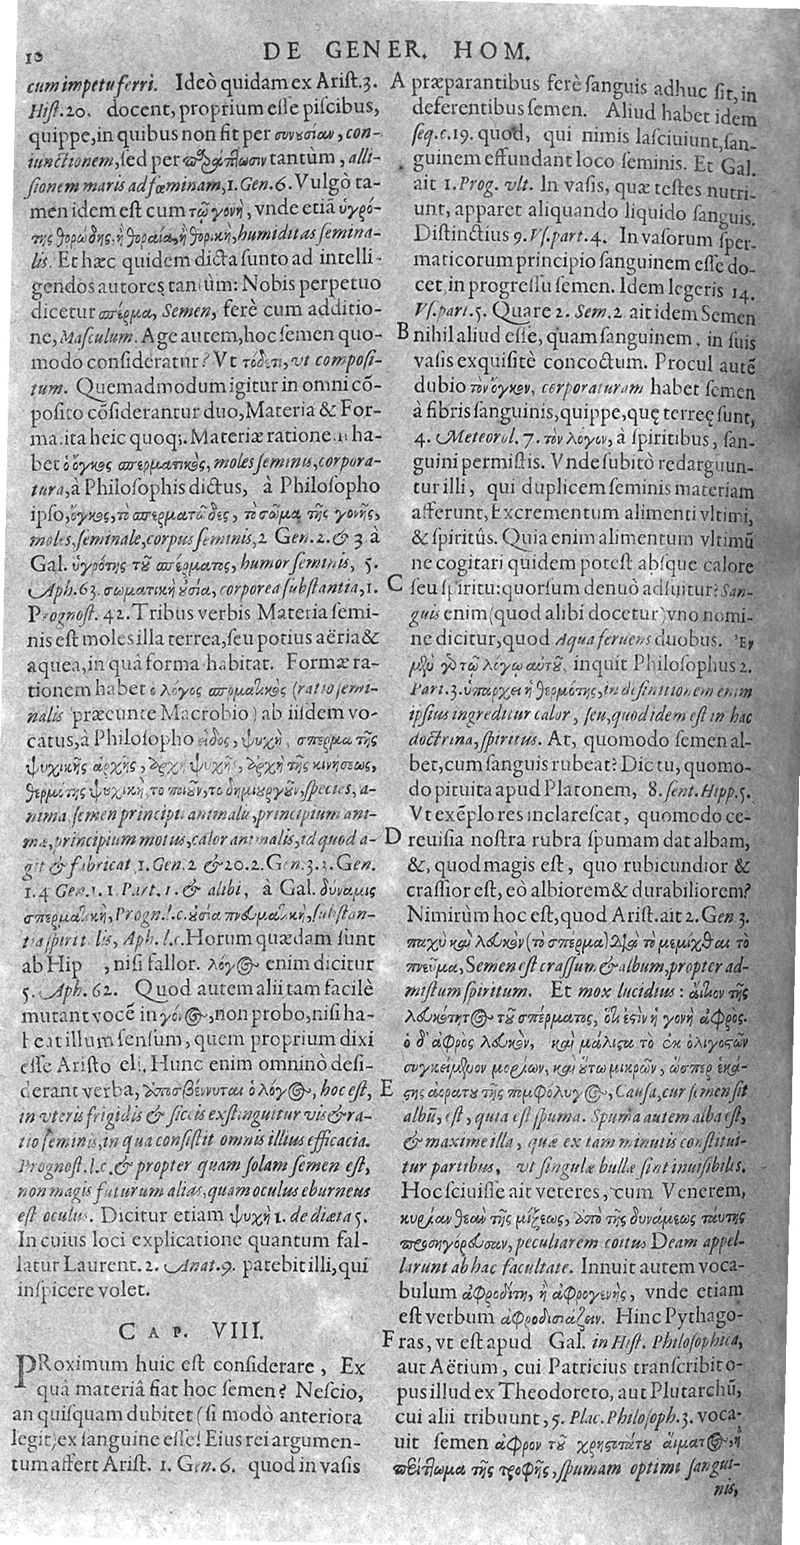 10
DE GENER. HOM.
cum impetu ferri. Ideò quidam ex Arist. 3.
Hist. 20. docent, proprium esse piscibus,
quippe, in quibus non fit per συνουσίαν, con-
iunctionem, sed per tantùm, alli-
sionem maris ad fœminam, 1. Gen. 6. Vulgò ta-
men idem est cum τῷ γονῇ, vnde etiā ὑγρό-
της θορώδης, ἢ θοραία, ἢ θορικὴ, humiditas semina-
lis. Et hæc quidem dicta sunto ad intelli-
gendos autores tantùm: Nobis perpetuo
dicetur σπέρμα, Semen, ferè cum additio-
ne, Masculum. Age autem, hoc semen quo-
modo consideratur? Vt τόδε τι, vt composi-
tum. Quemadmodum igitur in omni cō-
posito cōsiderantur duo, Materia & For-
ma: ita heic quoq;. Materiæ ratione ha-
bet ὁ ὄγκος σπερματικὸς, moles seminis, corpora-
tura, à Philosophis dictus, à Philosopho
ipso, ὄγκος, τὸ σπερματῶδες, τὸ σῶμα τῆς γονῆς,
moles, seminale, corpus seminis, 2 Gen. 2. & 3 à
Gal. ὑγρότης τοῦ σπέρματος, humor seminis, 5.
Aph. 63. σωματικὴ οὐσία, corporea substantia, 1.
Prognost. 42. Tribus verbis Materia semi-
nis est moles illa terrea, seu potius aëria &
aquea, in quâ forma habitat. Formæ ra-
tionem habet ὁ λόγος σπερματικὸς (ratio semi-
nalis præeunte Macrobio) ab iisdem vo-
catus, à Philosopho εἶδος, ψυχὴ, σπέρμα τῆς
ψυχικῆς ἀρχῆς, ἀρχὴ ψυχῆς, ἀρχὴ τῆς κινήσεως,
θερμότης ψυχικὴ, τὸ ποιοῦν, τὸ δημιουργοῦν, species, a-
nima, semen principii animalis, principium ani-
mæ, principium motus, calor animalis, id quod a-
git & fabricat 1. Gen. 2 & 20. 2. Gen. 3. 3. Gen.
1. 4 Gen. 1. 1 Part. 1. & alibi, à Gal. δύναμις
σπερματικὴ, Progn. l.c. οὐσία πνευματικὴ, substan-
tia spirit lis, Aph. l.c. Horum quædam sunt
ab Hip , nisi fallor. λόγος enim dicitur
5. Aph. 62. Quod autem alii tam facilè
mutant vocē in γόνος, non probo, nisi ha-
beat illum sensum, quem proprium dixi
esse Aristoteli. Hunc enim omninò desi-
derant verba, ἀποσβέννυται ὁ λόγος, hoc est,
in vteris frigidis & siccis exstinguitur vis & ra-
tio seminis, in qua consistit omnis illius efficacia.
Prognost. l.c. & propter quam solam semen est,
non magis futurum alias, quam oculus eburneus
est oculus. Dicitur etiam ψυχὴ 1. de diæta 5.
In cuius loci explicatione quantum fal-
latur Laurent. 2. Anat. 9. patebit illi, qui
inspicere volet.
CAP. VIII.
PRoximum huic est considerare, Ex
quâ materiâ fiat hoc semen? Nescio,
an quisquam dubitet (si modò anteriora
legit) ex sanguine esse! Eius rei argumen-
tum affert Arist. 1. Gen. 6. quod in vasis
A præparantibus ferè sanguis adhuc sit, in
deferentibus semen. Aliud habet idem
seq. c. 19. quod, qui nimis lasciuiunt, san-
guinem effundant loco seminis. Et Gal.
ait 1. Prog. vlt. In vasis, quæ testes nutri-
unt, apparet aliquando liquido sanguis.
Distinctius 9. Vs. part. 4. In vasorum sper-
maticorum principio sanguinem esse do-
cet, in progressu semen. Idem legeris 14.
Vs. part. 5. Quare 2. Sem. 2. ait idem Semen
B nihil aliud esse, quam sanguinem, in suis
vasis exquisitè concoctum. Procul autē
dubio τὸν ὄγκον, corporaturam habet semen
à fibris sanguinis, quippe, quę terreę sunt,
4. Meteorol. 7. τὸν λόγον, à spiritibus, san-
guini permistis. Vnde subitò redarguun-
tur illi, qui duplicem seminis materiam
afferunt, Excrementum alimenti vltimi,
& spiritûs. Quia enim alimentum vltimū
ne cogitari quidem potest absque calore
C seu spiritu: quorsum denuò adsuitur? San-
guis enim (quod alibi docetur) vno nomi-
ne dicitur, quod Aqua feruens duobus. Ἐν
μὲν γὰρ τῷ λόγῳ αὐτοῦ, inquit Philosophus 2.
Part. 3. ὑπάρχει ἡ θερμότης, in definitionem enim
ipsius ingreditur calor, seu, quod idem est in hac
doctrina, spiritus. At, quomodo semen al-
bet, cum sanguis rubeat? Dic tu, quomo-
do pituita apud Platonem, 8. sent. Hipp. 5.
Vt exēplo res inclarescat, quomodo ce-
D reuisia nostra rubra spumam dat albam,
&, quod magis est, quo rubicundior &
crassior est, eò albiorem & durabiliorem?
Nimirùm hoc est, quod Arist. ait 2. Gen 3.
παχὺ καὶ λευκὸν (τὸ σπέρμα) διὰ τὸ μεμίχθαι τὸ
πνεῦμα, Semen est crassum & album, propter ad-
mistum spiritum. Et mox lucidius: αἴτιον τῆς
λευκότητος τοῦ σπέρματος, ὅτι ἐστὶν ἡ γονὴ ἀφρός.
ὁ δ' ἀφρὸς λευκὸν, καὶ μάλιστα τὸ ἐκ ὀλιγοστῶν
συγκείμενον μορίων, καὶ οὕτω μικρῶν, ὥσπερ ἑκά-
E στης ἀοράτου τῆς πομφόλυγος, Causa, cur semen sit
albū, est, quia est spuma. Spuma autem alba est,
& maxime illa, quæ ex tam minutis constitui-
tur partibus, vt singulæ bullæ sint inuisibiles.
Hoc sciuisse ait veteres, cum Venerem,
κυρίαν θεὸν τῆς μίξεως, ἀπὸ τῆς δυνάμεως ταύτης
προσηγόρευσαν, peculiarem coitus Deam appel-
larunt ab hac facultate. Innuit autem voca-
bulum ἀφροδίτη, ἢ ἀφρογενὴς, vnde etiam
est verbum ἀφροδισιάζειν. Hinc Pythago-
F ras, vt est apud Gal. in Hist. Philosophica,
aut Aëtium, cui Patricius transcribit o-
pus illud ex Theodoreto, aut Plutarchū,
cui alii tribuunt, 5. Plac. Philosoph. 3. voca-
uit semen ἀφρὸν τοῦ χρηστοτάτου αἵματος, ἢ
τῆς τροφῆς, spumam optimi sangui-
nis,